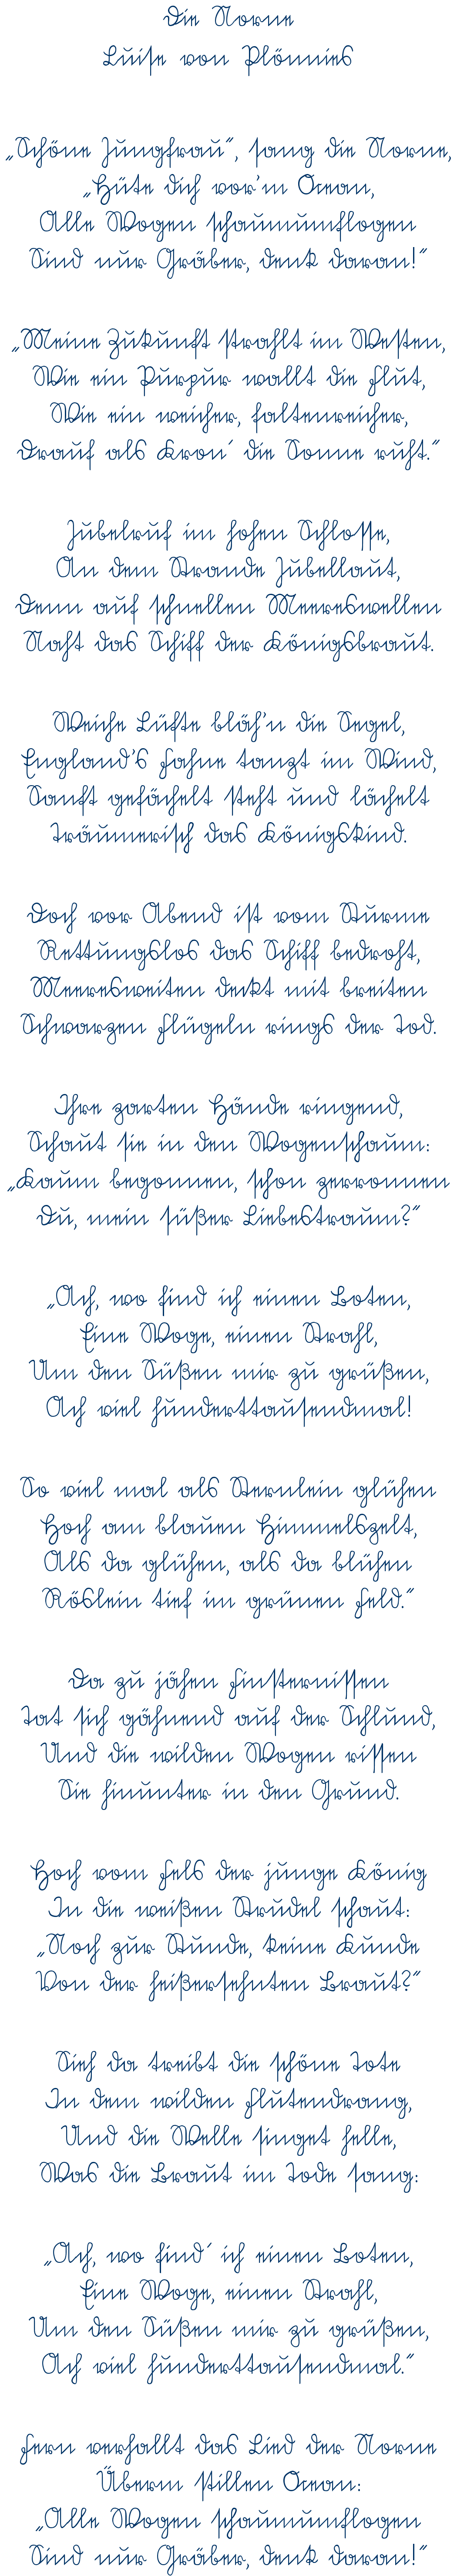 Die Norne
Luise von Plönnies
„Schöne Jungfrau“, sang die Norne,
„Hüte dich vor’m Ocean,
Alle Wogen schaumumflogen
Sind nur Gräber, denk daran!“
„Meine Zukunft strahlt im Westen,
Wie ein Purpur wallt die Flut,
Wie ein weicher, faltenreicher,
Drauf als Kron´ die Sonne ruht.“
Jubelruf im hohen Schlosse,
An dem Strande Jubellaut,
Denn auf schnellen Meereswellen
Naht das Schiff der Königsbraut.
Weiche Lüfte bläh’n die Segel,
England’s Fahne tanzt im Wind,
Sanft gefächelt steht und lächelt
Träumerisch das Königskind.
Doch vor Abend ist vom Sturme
Rettungslos das Schiff bedroht,
Meeresweiten deckt mit breiten
Schwarzen Flügeln rings der Tod.
Ihre zarten Hände ringend,
Schaut sie in den Wogenschaum:
„Kaum begonnen, schon zerronnen
Du, mein süßer Liebestraum?“
„Ach, wo find ich einen Boten,
Eine Woge, einen Strahl,
Um den Süßen mir zu grüßen,
Ach viel hunderttausendmal!
So viel mal als Sternlein glühen
Hoch am blauen Himmelszelt,
Als da glühen, als da blühen
Röslein tief im grünen Feld.“
Da zu jähen Finsternissen
Tat sich gähnend auf der Schlund,
Und die wilden Wogen rissen
Sie hinunter in den Grund.
Hoch vom Fels der junge König
In die weißen Strudel schaut:
„Noch zur Stunde, keine Kunde
Von der heißersehnten Braut?“
Sieh da treibt die schöne Tote
In dem wilden Flutendrang,
Und die Welle singet helle,
Was die Braut im Tode sang:
„Ach, wo find´ ich einen Boten,
Eine Woge, einen Strahl,
Um den Süßen mir zu grüßen,
Ach viel hunderttausendmal.“
Fern verhallt das Lied der Norne
Überm stillen Ocean:
„Alle Wogen schaumumflogen
Sind nur Gräber, denk daran!“